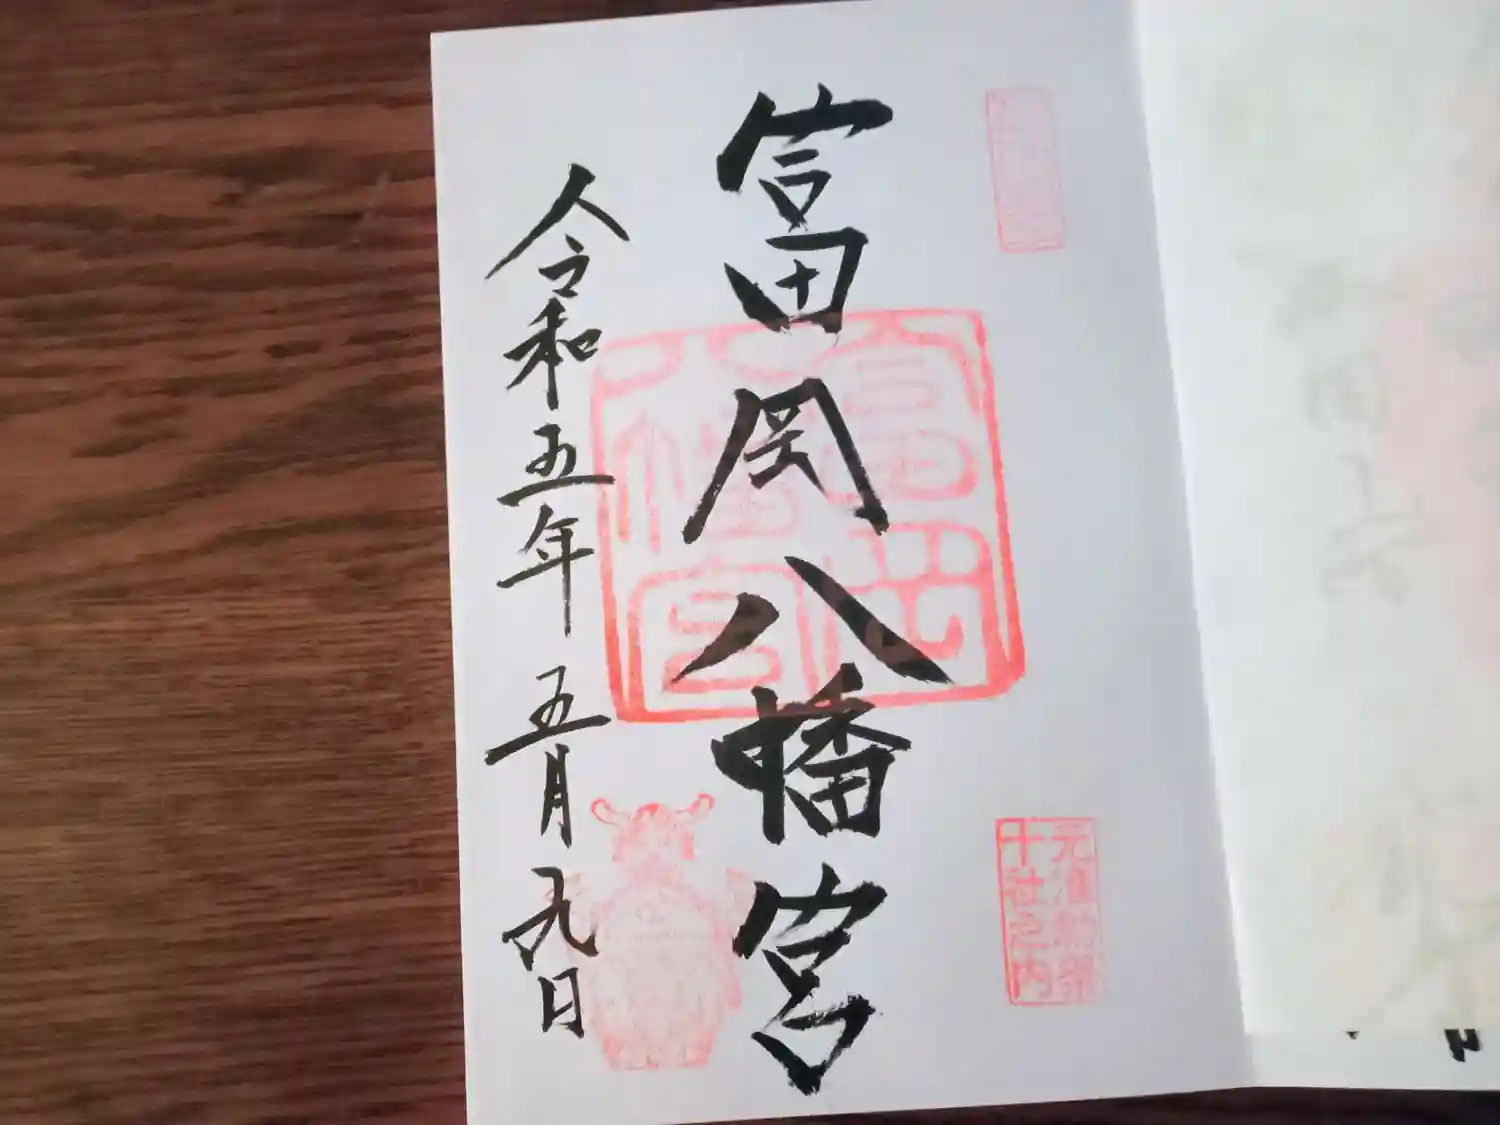 富岡八幡宮
元准勅祭
十社之内
富岡
八幡宮
令和五年
五月九日